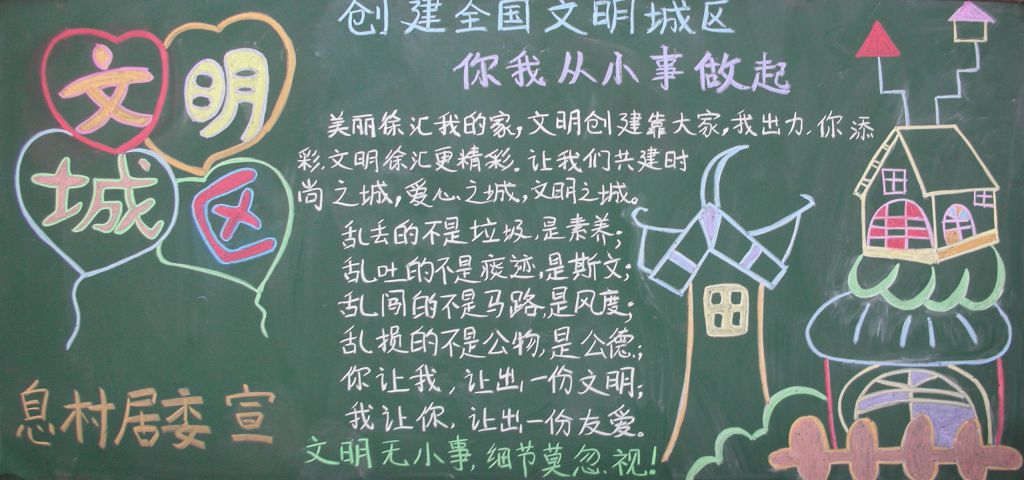 创建全国文明城区
你我从小事做起
文明
城区
美丽徐汇我的家,文明创建靠大家,我出力,你添
彩,文明徐汇更精彩。让我们共建时
尚之城,爱心之城,文明之城。
乱丢的不是垃圾,是素养;
乱吐的不是痰迹,是斯文;
乱闯的不是马路,是风度;
乱损的不是公物,是公德;
你让我,让出一份文明;
我让你,让出一份友爱。
文明无小事,细节莫忽视!
息村居委宣